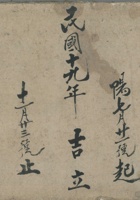 陽七月廿號起
民國十九年吉立
十一月廿三號止